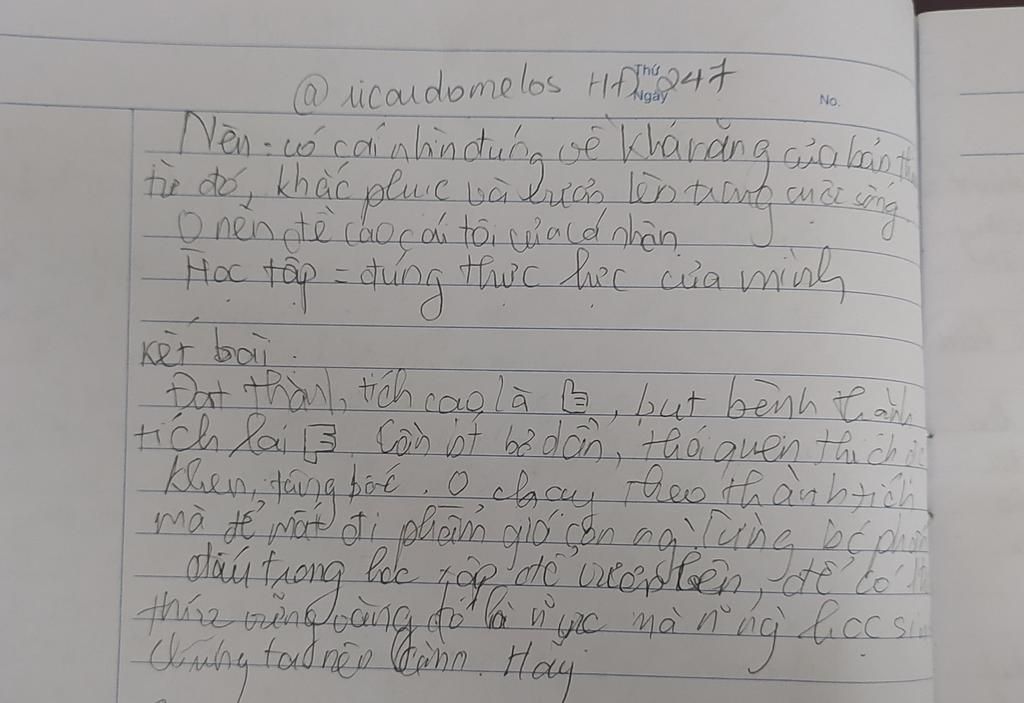 @ricardomelos HĐ 247
Thứ
Ngày
No.
Nên: có cái nhìn đúng về khả năng của bản
từ đó, khắc phục và vươn lên trong cuộc sống
0 nên đề cao cái tôi của cá nhân
Học tập = đúng thực lực của mình
Kết bài.
Đạt thành tích cao là, but bệnh thành
tích lại. Cần bỏ dần, thói quen thích
khen, tâng bốc. 0 chạy theo thành tích
mà để mất đi phẩm giá con ng
đấu trong học tập để vươn lên, để có
thức vững vàng đó là mà học
chúng ta nên làm. Hãy